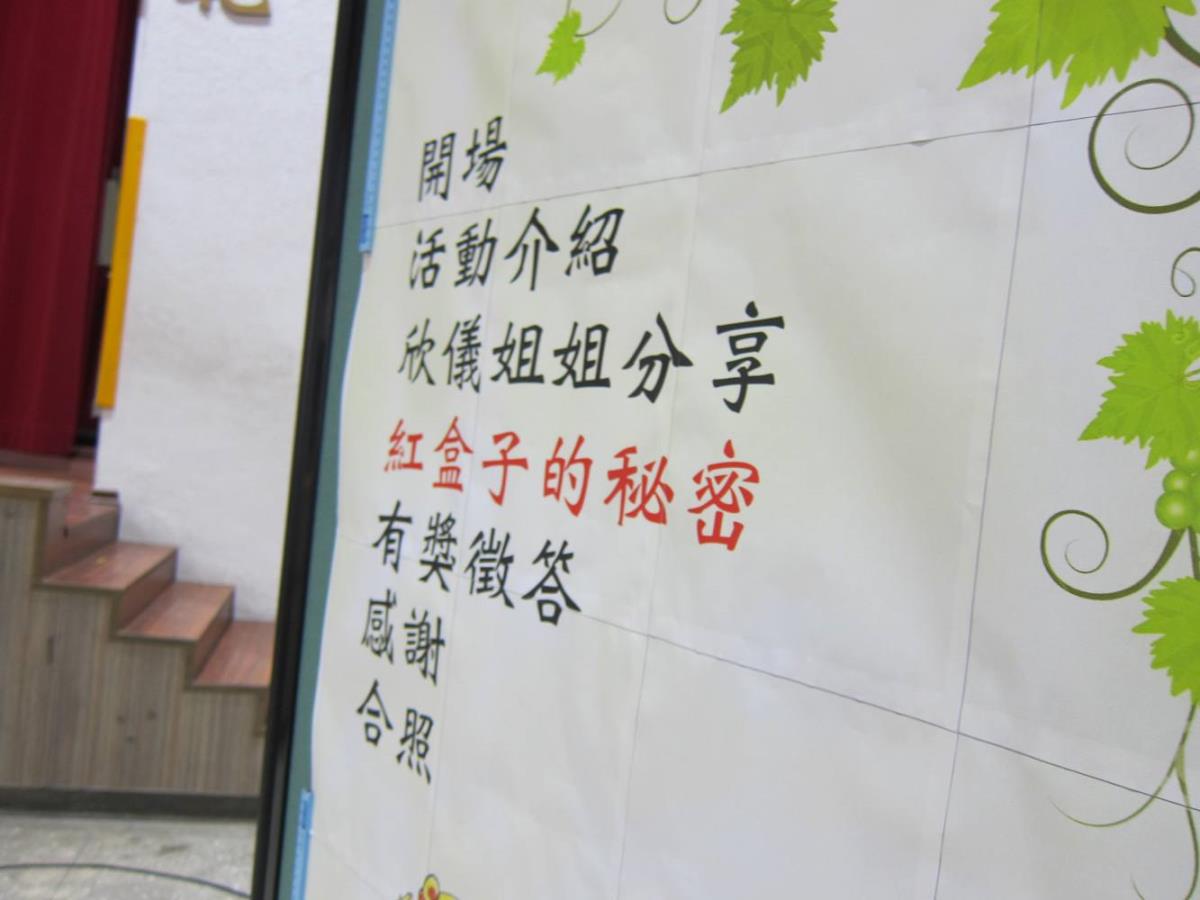 開場
活動介紹
欣儀姐姐分享
紅盒子的秘密
有獎徵答
感謝
合照